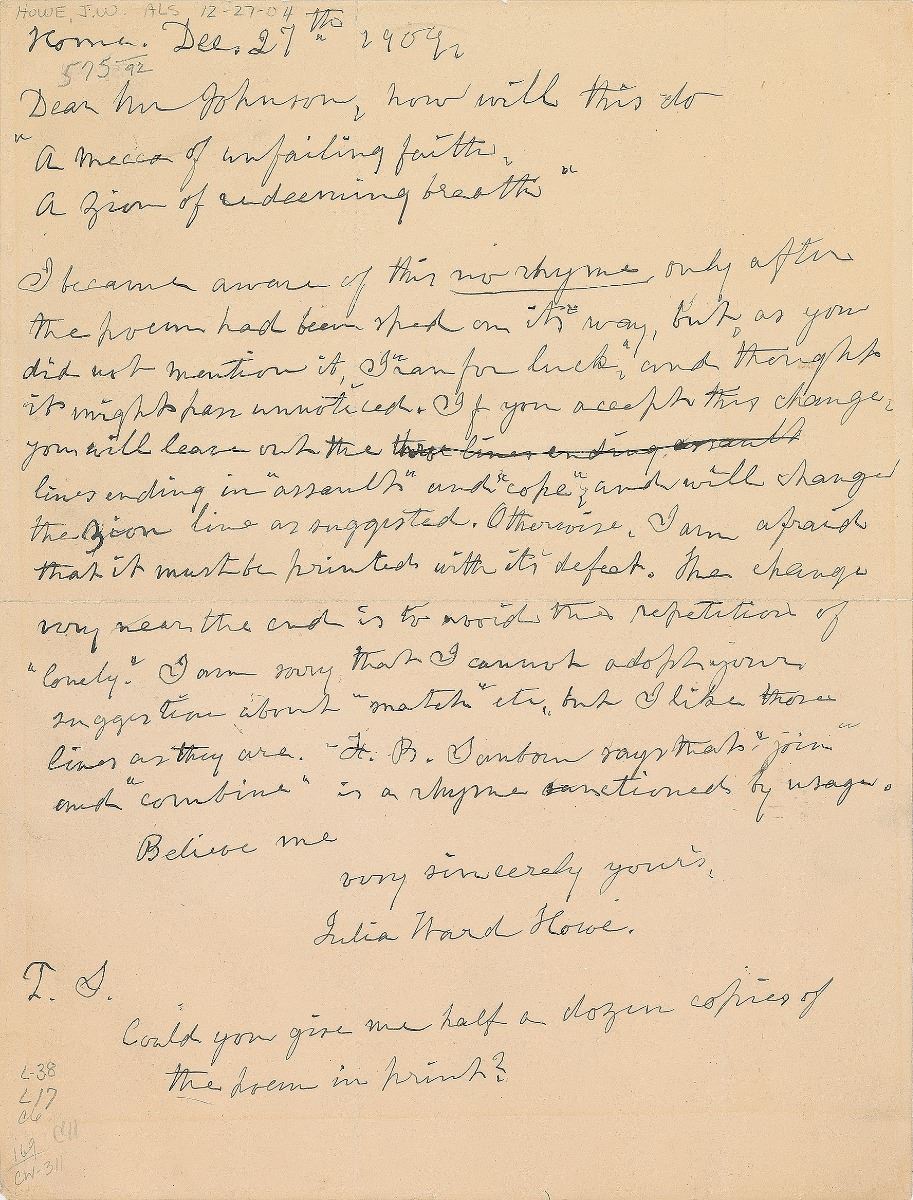 HOWE, J.W. ALS 12-27-04
Home. Dec. 27th 1904,
575-92
Dear Mr Johnson, how will this do
"A mecca of unfailing faith,
A zion of redeeming breath"
I became aware of this no rhyme only after
the poem had been sped on its way, but, as you
did not mention it, I "ran for luck", and thought
it might pass unnoticed. If you accept this change,
you will leave out the those lines ending assault
lines ending in "assault" and "cope", and will change
the zion line as suggested. Otherwise, I am afraid
that it must be printed with its defect. The change
very near the end is to avoid the repetition of
"lonely". I am sorry that I cannot adopt your
suggestion about "match" etc, but I like those
lines as they are. - F. B. Sanborn says that "join"
and "combine" is a rhyme sanctioned by usage.
Believe me
very sincerely yours,
Julia Ward Howe.
P. S.
Could you give me half a dozen copies of
the poem in print?
L-38
L17
C6
C11
169
CW-311